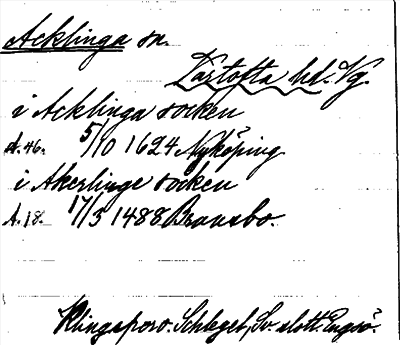 Acklinga sn.
Kartofta hd. Vg.
i Acklinga socken
A. 46. 5/10 1624 Nyköping
i Akerlinge socken
A. 18. 17/3 1488 Bransbo.
Klingspor o. Schlegel, Sv. slott. Engsö.